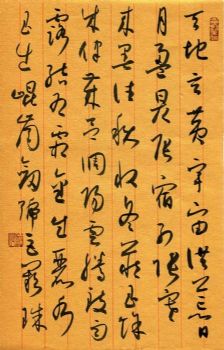 天地玄黃宇宙洪荒日
月盈昃辰宿列張寒
來暑往秋收冬藏閏餘
成歲律呂調陽雲騰致雨
露結為霜金生麗水
玉出崐崗劍號巨闕珠